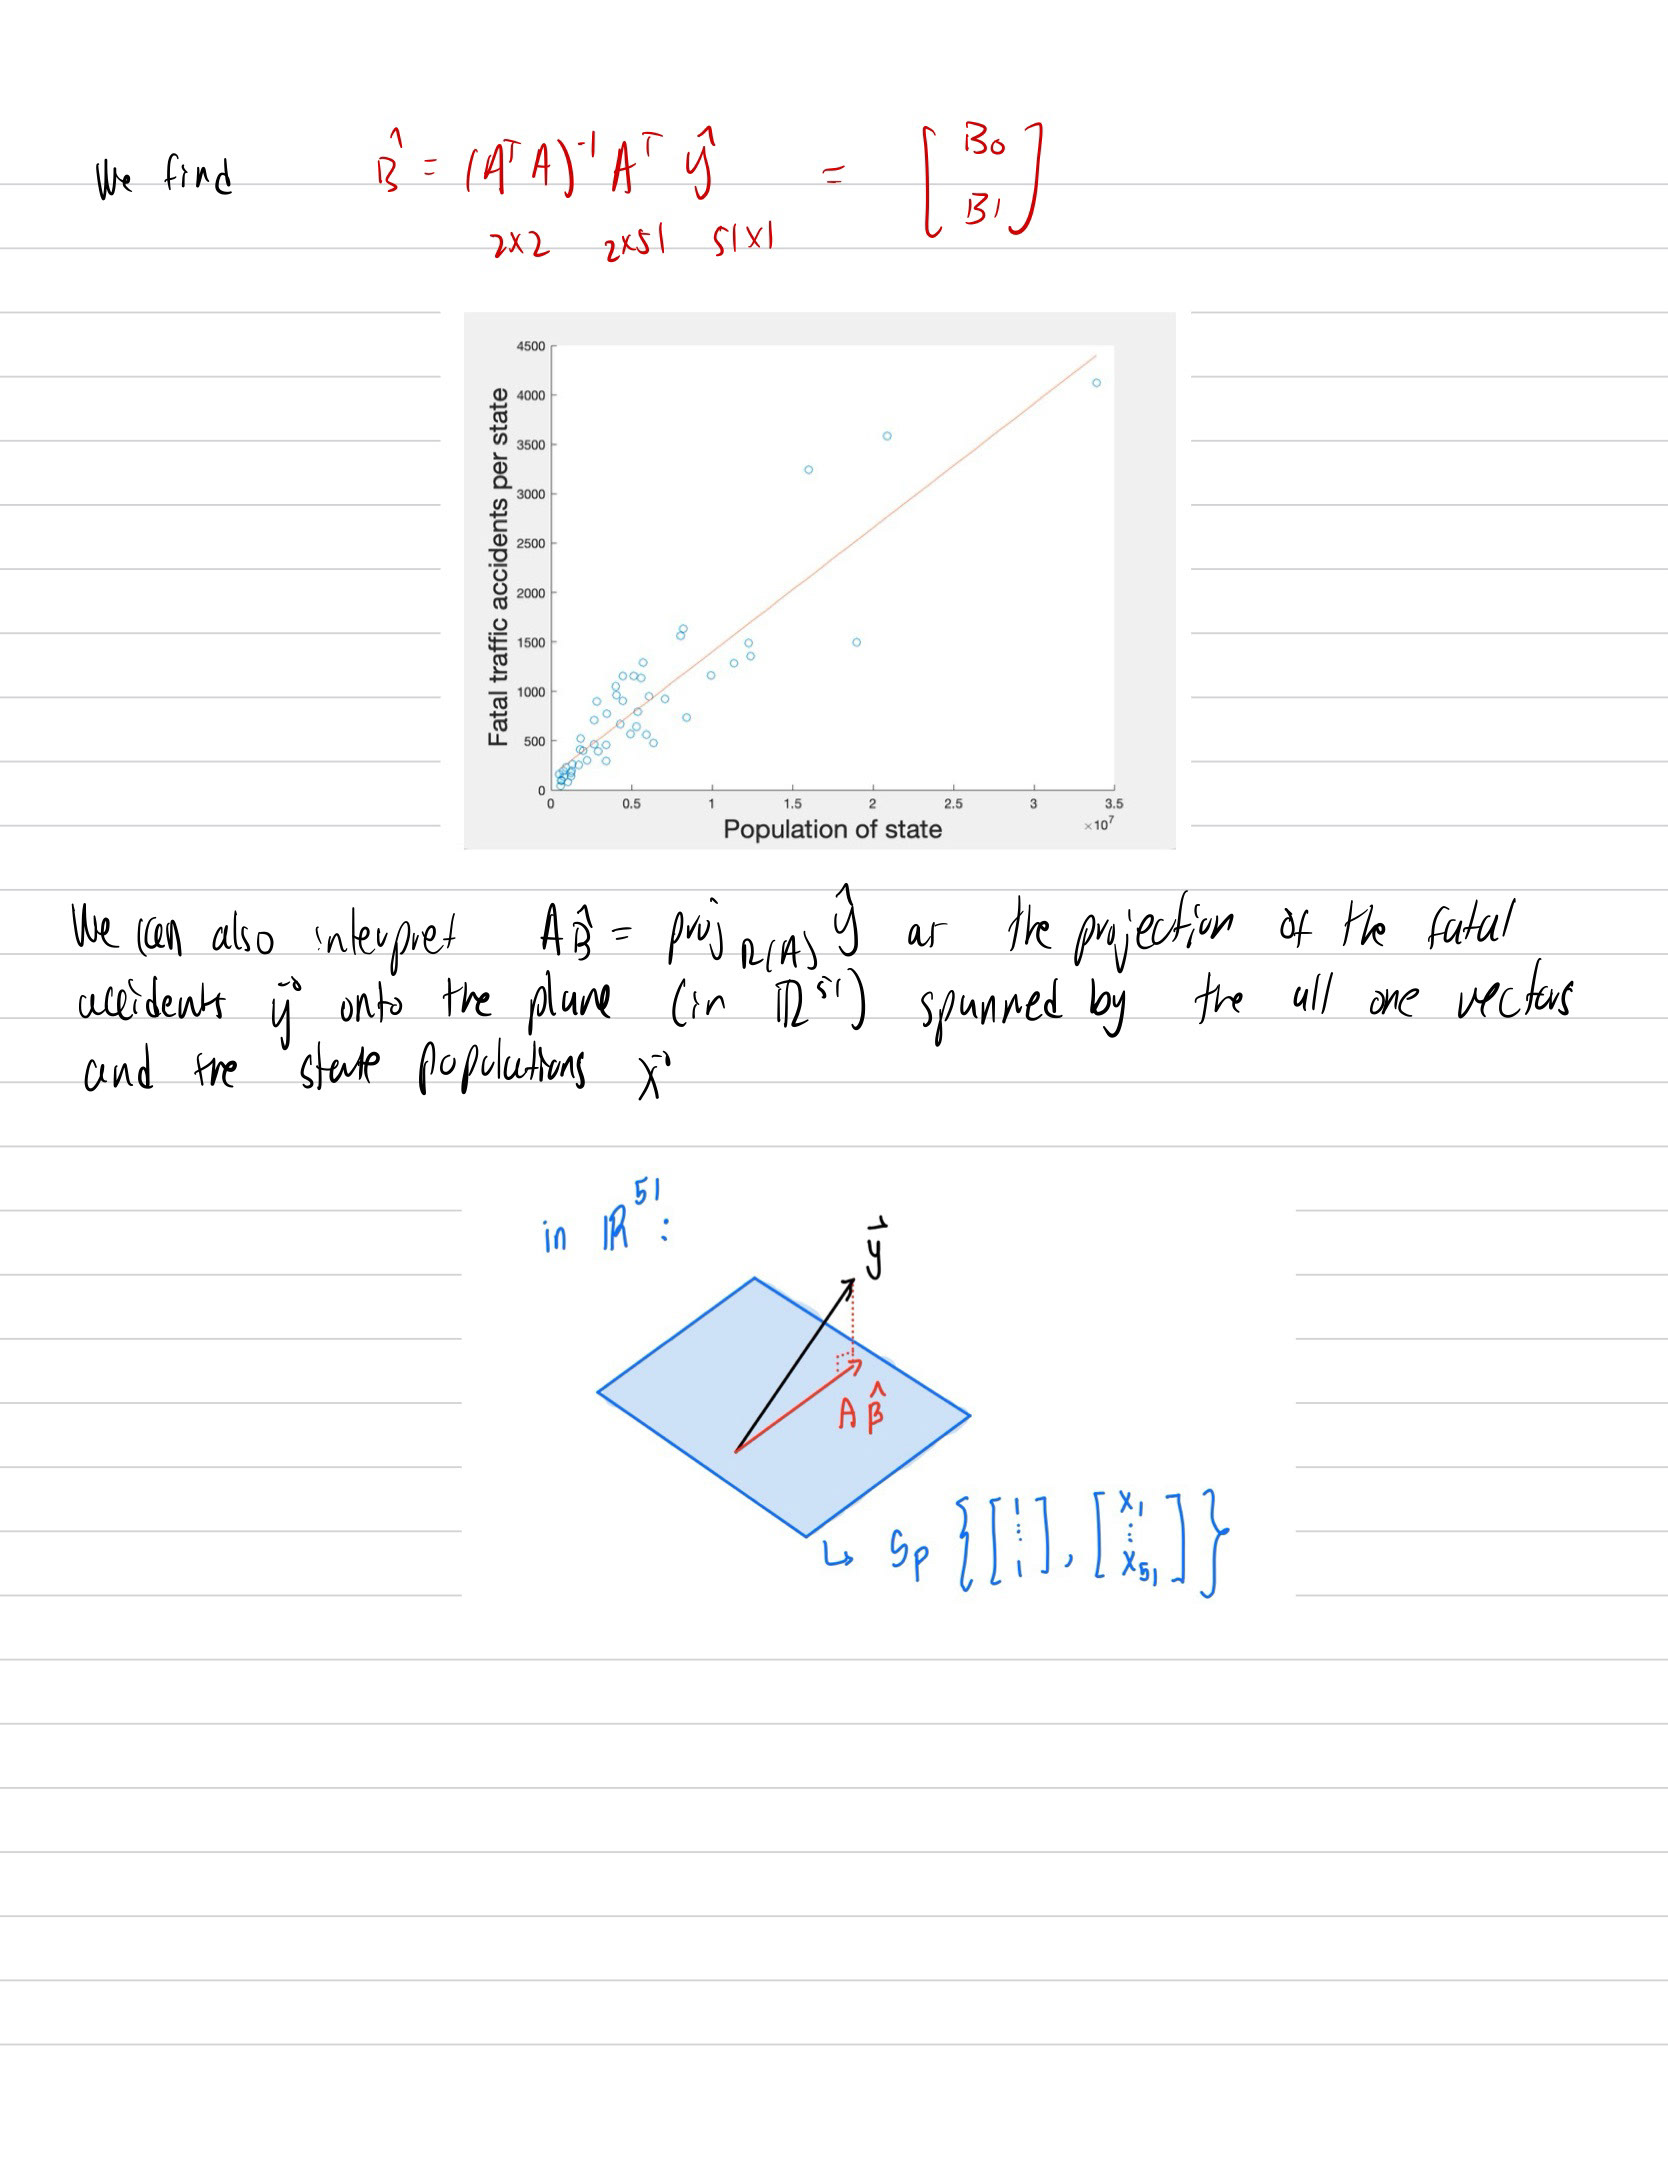 We find B̂ = (AᵀA)⁻¹ Aᵀ ŷ = [ B0
B1 ]
2x2 2x51 51x1
4500
4000
3500
3000
2500
2000
1500
1000
500
0
Fatal traffic accidents per state
0 0.5 1 1.5 2 2.5 3 3.5
×10⁷
Population of state
We can also interpret A B̂ = proj R(A) ŷ as the projection of the fatal
accidents y⃗ onto the plane (in ℝ⁵¹) spanned by the all one vectors
and the state populations x⃗
in ℝ⁵¹:
y⃗
A β̂
↳ Sp { [ 1 ⋮ 1 ], [ x₁ ⋮ x₅₁ ] }